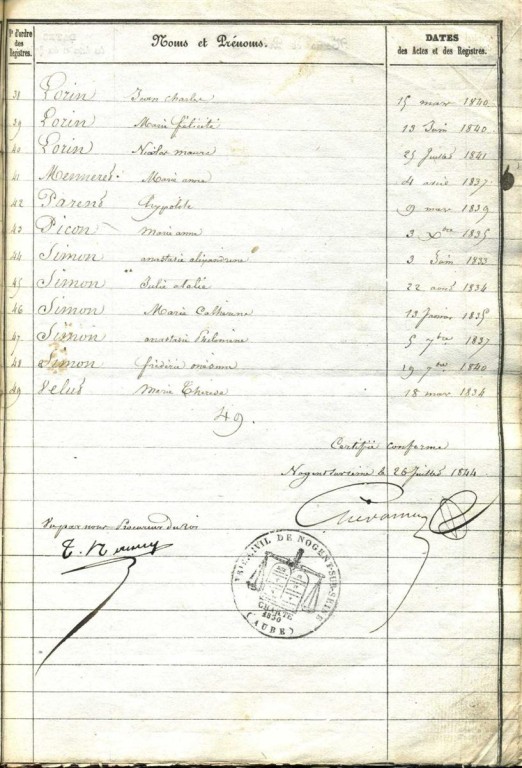 N° d'ordre des Registres. Noms et Prénoms. DATES des Actes et des Registres.
38 Lorin Jean Charles 15 mar 1840
39 Lorin Marie félicité 13 Juin 1840
40 Lorin Nicolas 25 Juillet 1841
41 Marie anne 4 1837
42 hypolite 9 mar 1839
43 Picon Marie anne 3 Xbre 1835
44 Simon anastasie alexandrine 3 Juin 1833
45 Simon Julie 22 1834
46 Simon Marie Catherine 13 Janvier 1835
47 Simon anastasie 5 7bre 1837
48 Simon 19 7bre 1840
49 Marie Theresa 18 mar 1834
49.
Certifié conforme
Nogent sur seine le 26 Juillet 1844
Vu par nous Procureur du roi
CIVIL DE NOGENT-SUR-SEINE
CHARTE
1830
(AUBE)